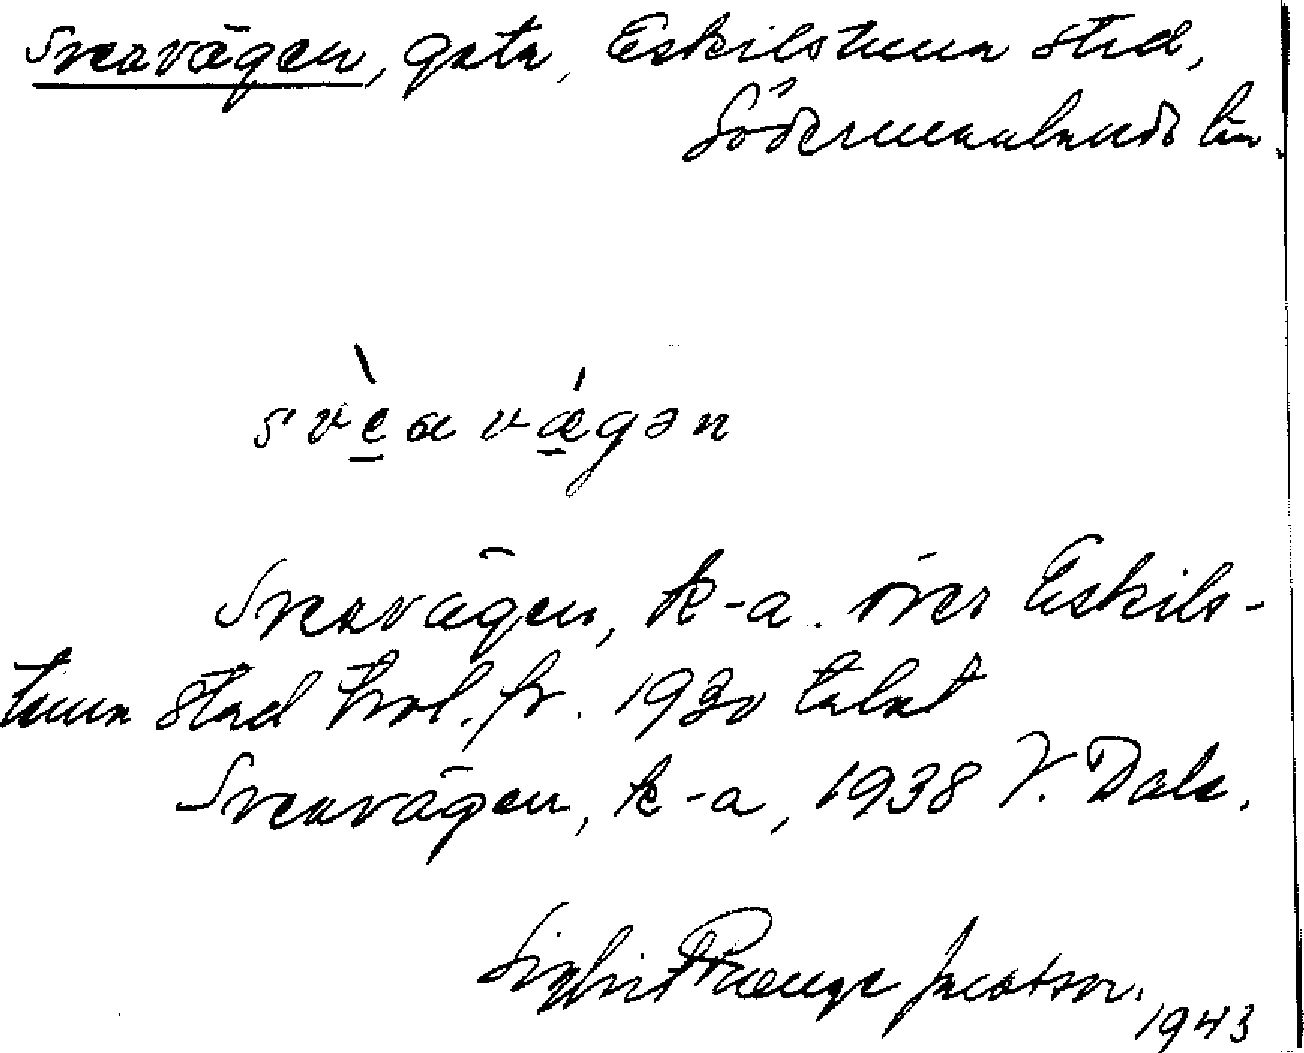 Sveavägen, gata, Eskilstuna stad,
Södermanlands län.
svèɑvǽgən
Sveavägen, k-a. över Eskils-
tuna stad trol. fr. 1930 talet
Sveavägen, k-a, 1938 V. Dale.
Sigbrit Plænge Jacobson.
1943